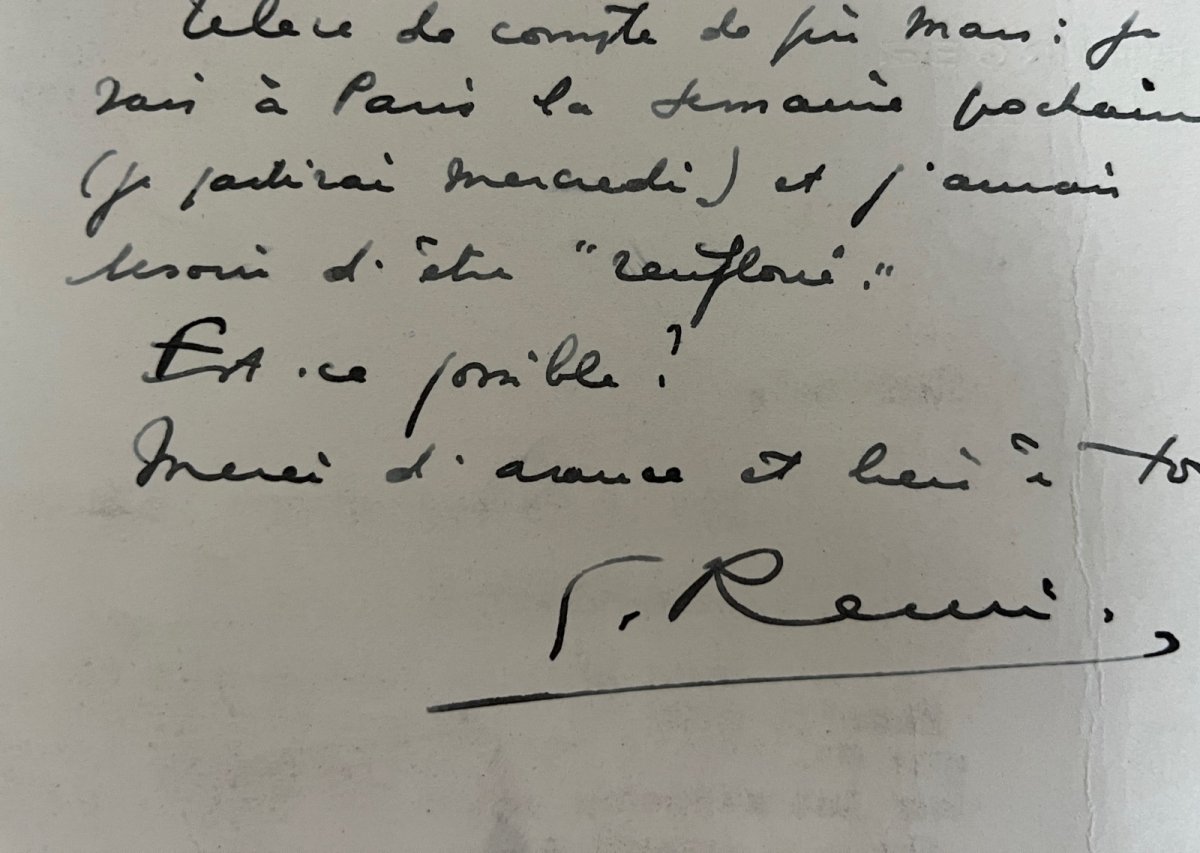 relevé de compte de fin Mars : je
vais à Paris la semaine prochaine
(je partirai mercredi) et j'aurais
besoin d'être "renfloué."
Est-ce possible ?
Merci d'avance et bien à to
G. Remi.